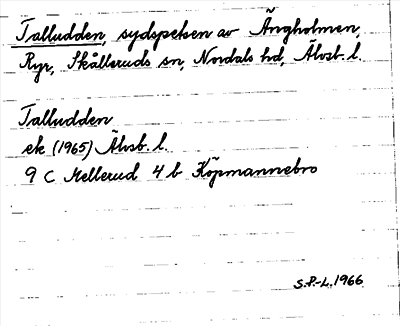 Talludden, sydspetsen av Ängholmen,
Ryr, Skålleruds sn, Nordals hd, Älvsb. l.
Talludden
ek (1965) Älvsb. l.
9 C Mellerud 4 b Köpmannebro
S.P.-L. 1966